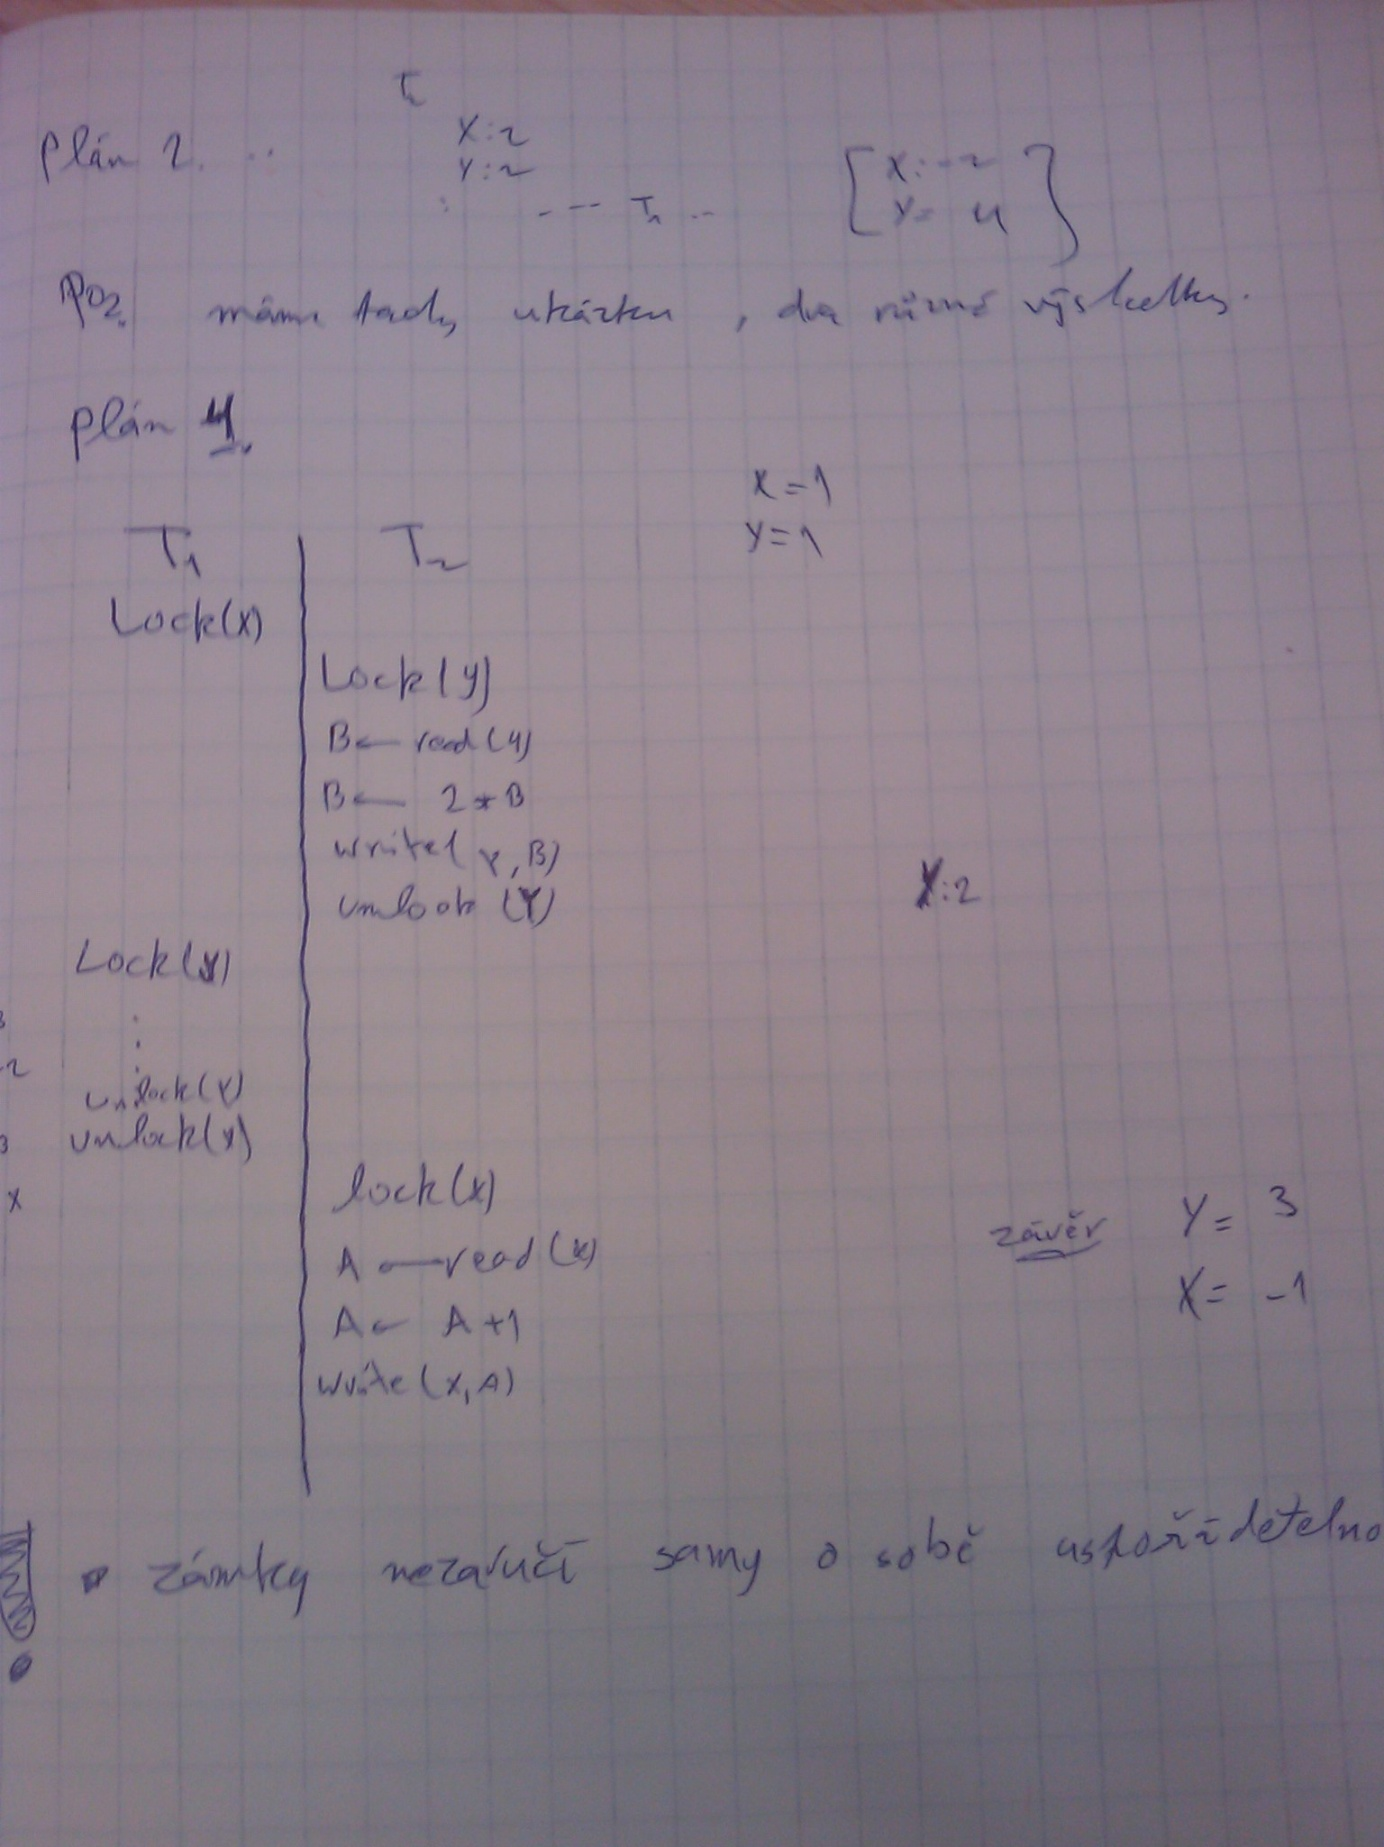 T₂
Plán 2. ..
X:2
Y:2
: --- T₁ ..
X: -2
Y= 4
Poz. máme tady ukázku, dva různé výsledky.
plán 4.
X=1
Y=1
T₁ T₂
Lock(X)
Lock(y)
B ← read(y)
B ← 2*B
write(Y,B)
unlook (Y)
Y:2
Lock(y)
3
:
2
unlock(Y)
3 unlock(x)
x
lock(x)
A ← read(x)
A ← A+1
write(X,A)
závěr
Y= 3
X= -1
! • zámky nezaručí samy o sobě uspořádetelno